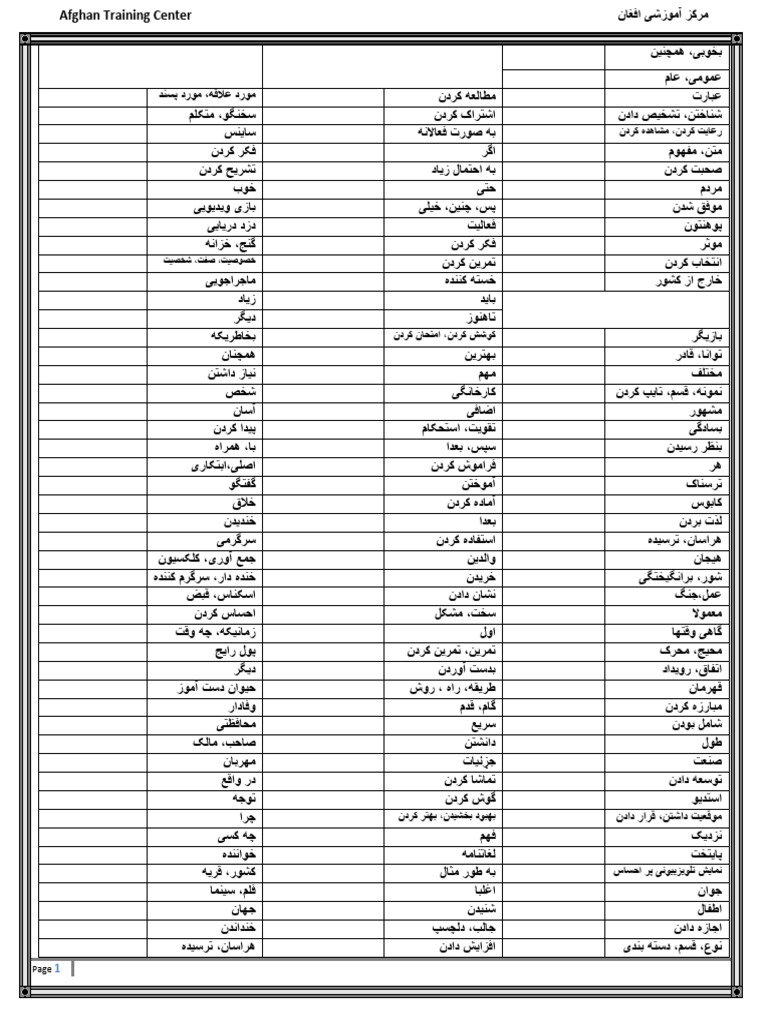 Afghan Training Center
مرکز آموزشی افغان
بخوبی، همچنین
عمومی، عام
عبارت
شناختن، تشخیص دادن
رعایت کردن، مشاهده کردن
متن، مفهوم
صحبت کردن
مردم
موفق شدن
پوهنتون
موثر
انتخاب کردن
خارج از کشور
بازیگر
توانا، قادر
مختلف
نمونه، قسم، تایپ کردن
مشهور
بسادگی
بنظر رسیدن
هر
ترسناک
کابوس
لذت بردن
هراسان، ترسیده
هیجان
شور، برانگیختگی
عمل،جنگ
معمولا
گاهی وقتها
محیج، محرک
اتفاق، رویداد
قهرمان
مبارزه کردن
شامل بودن
طول
صنعت
توسعه دادن
استدیو
موقعیت داشتن، قرار دادن
نزدیک
پایتخت
نمایش تلویزییونی پر احساس
جوان
اطفال
اجازه دادن
نوع، قسم، دسته بندی
مطالعه کردن
اشتراک کردن
به صورت فعالانه
اگر
به احتمال زیاد
حتی
پس، چنین، خیلی
فعالیت
فکر کردن
تمرین کردن
خسته کننده
باید
تاهنوز
کوشش کردن، امتحان کردن
بهترین
مهم
کارخانگی
اضافی
تقویت، استحکام
سپس، بعدا
فراموش کردن
آموختن
آماده کردن
بعدا
استفاده کردن
والدین
خریدن
نشان دادن
سخت، مشکل
اول
تمرین، تمرین کردن
بدست آوردن
طریقه، راه ، روش
گام، قدم
سریع
دانشتن
جزئیات
تماشا کردن
گوش کردن
بهبود بخشیدن، بهتر کردن
فهم
لغاتنامه
به طور مثال
اغلبا
شنیدن
جالب، دلچسپ
افزایش دادن
مورد علاقه، مورد پسند
سخنگو، متکلم
ساینس
فکر کردن
تشریح کردن
خوب
بازی ویدیویی
دزد دریایی
گنج، خزانه
خصوصیت، صفت، شخصیت
ماجراجویی
زیاد
دیگر
بخاطریکه
همچنان
نیاز داشتن
شخص
آسان
پیدا کردن
با، همراه
اصلی،ابتکاری
گفتگو
خلاق
خندیدن
سرگرمی
جمع آوری، کلکسیون
خنده دار، سرگرم کننده
اسکناس، قبض
احساس کردن
زمانیکه، چه وقت
پول رایج
دیگر
حیوان دست آموز
وفادار
محافظتی
صاحب، مالک
مهربان
در واقع
توجه
چرا
چه کسی
خواننده
کشور، قریه
فلم، سینما
جهان
خنداندن
هراسان، ترسیده
Page 1